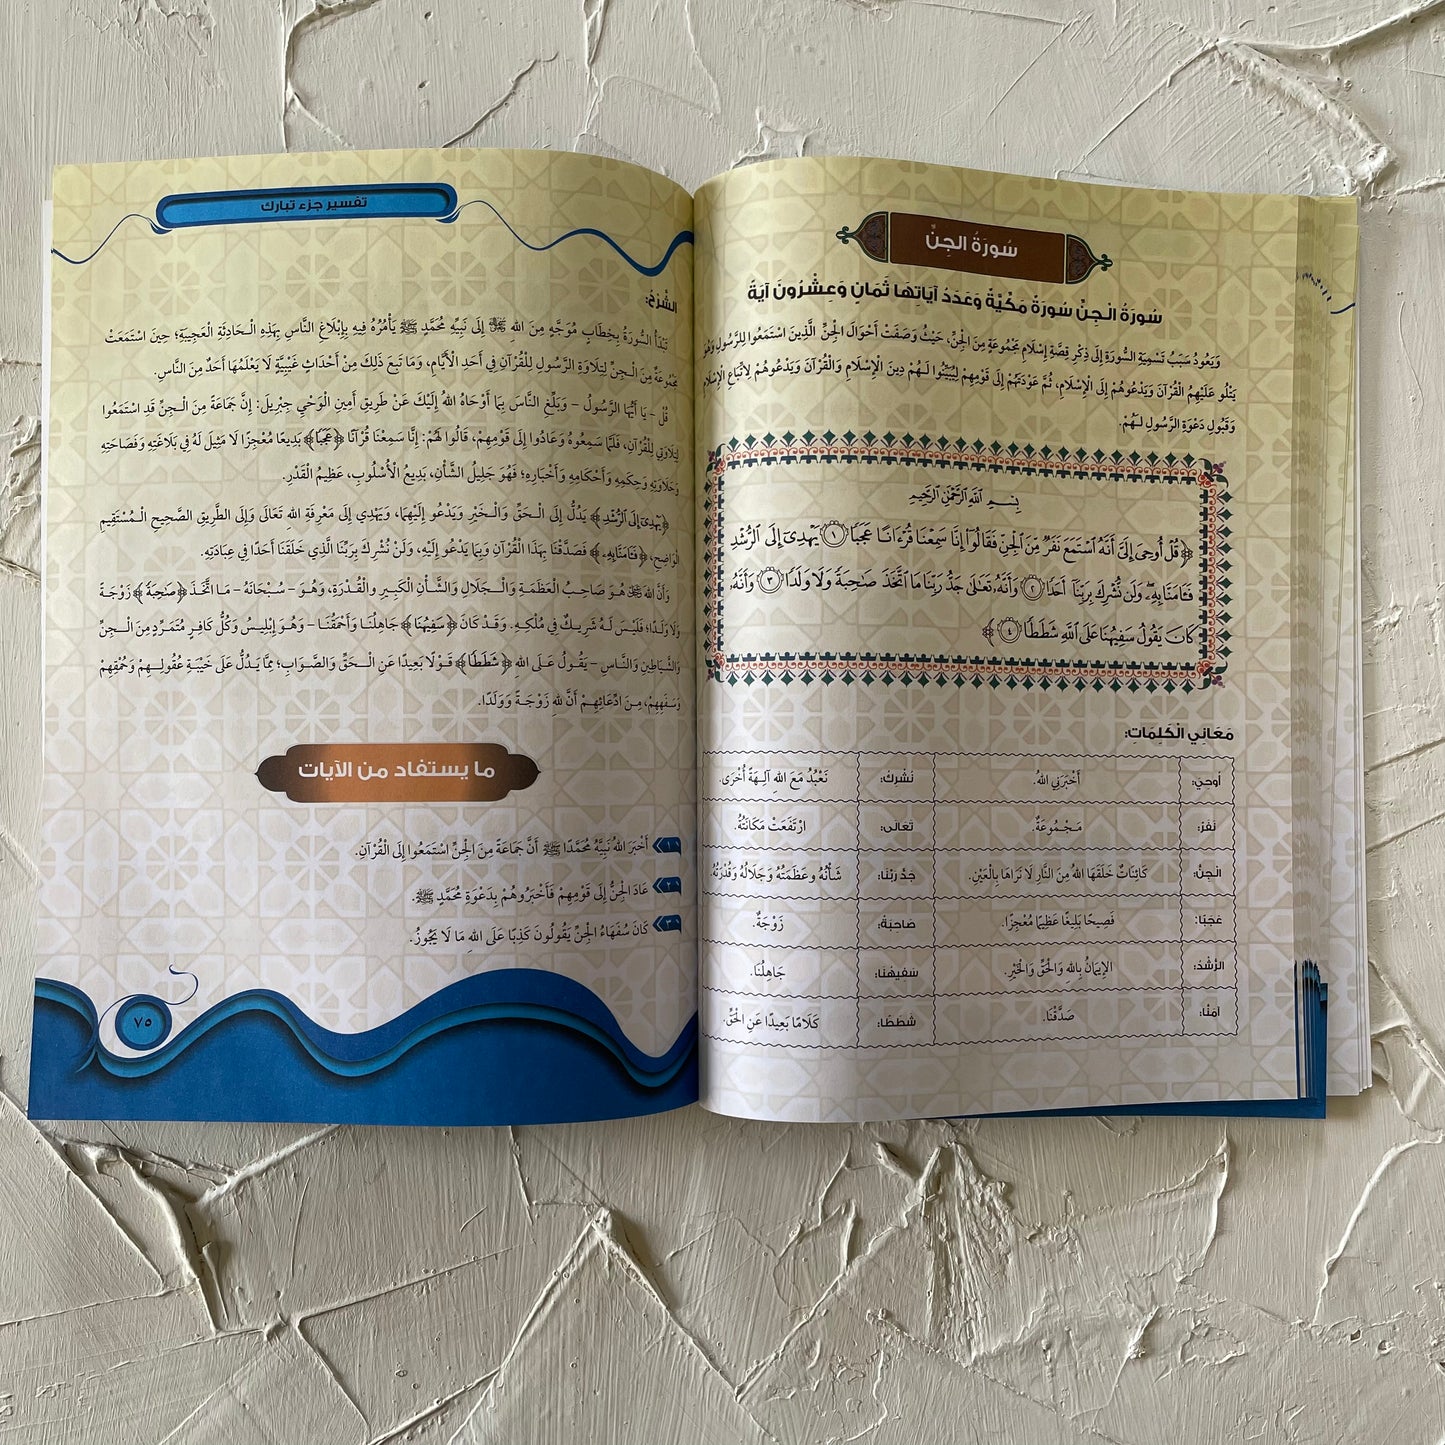 سُورَةُ الجِنِّ
سُورَةُ الْجِنِّ سُورَةٌ مَكِّيَّةٌ وَعَدَدُ آيَاتِهَا ثَمَانٍ وَعِشْرُونَ آيَةً
وَيَعُودُ سَبَبُ تَسْمِيَةِ السُّورَةِ إِلَى ذِكْرِ قِصَّةِ إِسْلَامِ مَجْمُوعَةٍ مِنَ الْجِنِّ، حَيْثُ وَصَفَتْ أَحْوَالَ الْجِنِّ الَّذِينَ اسْتَمَعُوا لِلرَّسُولِ وَهُوَ
يَتْلُو عَلَيْهِمُ الْقُرْآنَ وَيَدْعُوهُمْ إِلَى الْإِسْلَامِ، ثُمَّ عَوْدَتَهُمْ إِلَى قَوْمِهِمْ لِيُبَيِّنُوا لَهُمْ دِينَ الْإِسْلَامِ وَالْقُرْآنَ وَيَدْعُوهُمْ لِاتِّبَاعِ الْإِسْلَامِ
وَقَبُولِ دَعْوَةِ الرَّسُولِ لَهُمْ.
بِسْمِ ٱللَّهِ ٱلرَّحْمَٰنِ ٱلرَّحِيمِ
﴿قُلْ أُوحِيَ إِلَيَّ أَنَّهُ ٱسْتَمَعَ نَفَرٌ مِّنَ ٱلْجِنِّ فَقَالُوٓا۟ إِنَّا سَمِعْنَا قُرْءَانًا عَجَبًا ١ يَهْدِىٓ إِلَى ٱلرُّشْدِ
فَـَٔامَنَّا بِهِۦ وَلَن نُّشْرِكَ بِرَبِّنَآ أَحَدًا ٢ وَأَنَّهُۥ تَعَٰلَىٰ جَدُّ رَبِّنَا مَا ٱتَّخَذَ صَٰحِبَةً وَلَا وَلَدًا ٣ وَأَنَّهُۥ
كَانَ يَقُولُ سَفِيهُنَا عَلَى ٱللَّهِ شَطَطًا ٤﴾
مَعَانِي الْكَلِمَاتِ:
أُوحِيَ: أَخْبَرَنِي اللهُ. نُشْرِكَ: نَعْبُدُ مَعَ اللهِ آلِهَةً أُخْرَى.
نَفَرٌ: مَجْمُوعَةٌ. تَعَالَى: ارْتَفَعَتْ مَكَانَتُهُ.
الْجِنُّ: كَائِنَاتٌ خَلَقَهَا اللهُ مِنَ النَّارِ لَا نَرَاهَا بِالْعَيْنِ. جَدُّ رَبِّنَا: شَأْنُهُ وَعَظَمَتُهُ وَجَلَالُهُ وَقُدْرَتُهُ.
عَجَبًا: فَصِيحًا بَلِيغًا عَظِيمًا مُعْجِزًا. صَاحِبَةً: زَوْجَةٌ.
الرُّشْدُ: الإِيمَانُ بِاللهِ وَالْحَقِّ وَالْخَيْرِ. سَفِيهُنَا: جَاهِلُنَا.
آمَنَّا: صَدَّقْنَا. شَطَطًا: كَلَامًا بَعِيدًا عَنِ الْحَقِّ.
تفسير جزء تبارك
الشَّرْحُ:
تَبْدَأُ السُّورَةُ بِخِطَابٍ مُوَجَّهٍ مِنَ اللهِ ﷻ إِلَى نَبِيِّهِ مُحَمَّدٍ ﷺ يَأْمُرُهُ فِيهِ بِإِبْلَاغِ النَّاسِ بِهَذِهِ الْحَادِثَةِ الْعَجِيبَةِ؛ حِينَ اسْتَمَعَتْ
مَجْمُوعَةٌ مِنَ الْجِنِّ لِتِلَاوَةِ الرَّسُولِ لِلْقُرْآنِ فِي أَحَدِ الْأَيَّامِ، وَمَا تَبِعَ ذَلِكَ مِنْ أَحْدَاثٍ غَيْبِيَّةٍ لَا يَعْلَمُهَا أَحَدٌ مِنَ النَّاسِ.
قُلْ - يَا أَيُّهَا الرَّسُولُ - وَبَلِّغِ النَّاسَ بِمَا أَوْحَاهُ اللهُ إِلَيْكَ عَنْ طَرِيقِ أَمِينِ الْوَحْيِ جِبْرِيلَ: إِنَّ جَمَاعَةً مِنَ الْجِنِّ قَدِ اسْتَمَعُوا
لِتِلَاوَتِي لِلْقُرْآنِ، فَلَمَّا سَمِعُوهُ وَعَادُوا إِلَى قَوْمِهِمْ، قَالُوا لَهُمْ: إِنَّا سَمِعْنَا قُرْآنًا ﴿عَجَبًا﴾ بَدِيعًا مُعْجِزًا لَا مَثِيلَ لَهُ فِي بَلَاغَتِهِ وَفَصَاحَتِهِ
وَحَلَاوَتِهِ وَحِكَمِهِ وَأَحْكَامِهِ وَأَخْبَارِهِ؛ فَهُوَ جَلِيلُ الشَّأْنِ، بَدِيعُ الْأُسْلُوبِ، عَظِيمُ الْقَدْرِ.
﴿يَهْدِىٓ إِلَى ٱلرُّشْدِ﴾ يَدُلُّ إِلَى الْحَقِّ وَالْخَيْرِ وَيَدْعُو إِلَيْهِمَا، وَيَهْدِي إِلَى مَعْرِفَةِ اللهِ تَعَالَى وَإِلَى الطَّرِيقِ الصَّحِيحِ الْمُسْتَقِيمِ
الْوَاضِحِ، ﴿فَـَٔامَنَّا بِهِۦ﴾ فَصَدَّقْنَا بِهَذَا الْقُرْآنِ وَبِمَا يَدْعُو إِلَيْهِ، وَلَنْ نُشْرِكَ بِرَبِّنَا الَّذِي خَلَقَنَا أَحَدًا فِي عِبَادَتِهِ.
وَأَنَّ اللهَ ﷻ هُوَ صَاحِبُ الْعَظَمَةِ وَالْجَلَالِ وَالشَّأْنِ الْكَبِيرِ وَالْقُدْرَةِ، وَهُوَ - سُبْحَانَهُ - مَا اتَّخَذَ ﴿صَٰحِبَةً﴾ زَوْجَةً
وَلَا وَلَدًا؛ فَلَيْسَ لَهُ شَرِيكٌ فِي مُلْكِهِ. وَقَدْ كَانَ ﴿سَفِيهُنَا﴾ جَاهِلُنَا وَأَحْمَقُنَا - وَهُوَ إِبْلِيسُ وَكُلُّ كَافِرٍ مُتَمَرِّدٍ مِنَ الْجِنِّ
وَالشَّيَاطِينِ وَالنَّاسِ - يَقُولُ عَلَى اللهِ ﴿شَطَطًا﴾ قَوْلًا بَعِيدًا عَنِ الْحَقِّ وَالصَّوَابِ؛ مِمَّا يَدُلُّ عَلَى خَيْبَةِ عُقُولِهِمْ وَحُمْقِهِمْ
وَسَفَهِهِمْ، مِنَ ادِّعَائِهِمْ أَنَّ لِلهِ زَوْجَةً وَوَلَدًا.
ما يستفاد من الآيات
١ أَخْبَرَ اللهُ نَبِيَّهُ مُحَمَّدًا ﷺ أَنَّ جَمَاعَةً مِنَ الْجِنِّ اسْتَمَعُوا إِلَى الْقُرْآنِ.
٢ عَادَ الْجِنُّ إِلَى قَوْمِهِمْ فَأَخْبَرُوهُمْ بِدَعْوَةِ مُحَمَّدٍ ﷺ.
٣ كَانَ سُفَهَاءُ الْجِنِّ يَقُولُونَ كَذِبًا عَلَى اللهِ مَا لَا يَجُوزُ.
٧٥